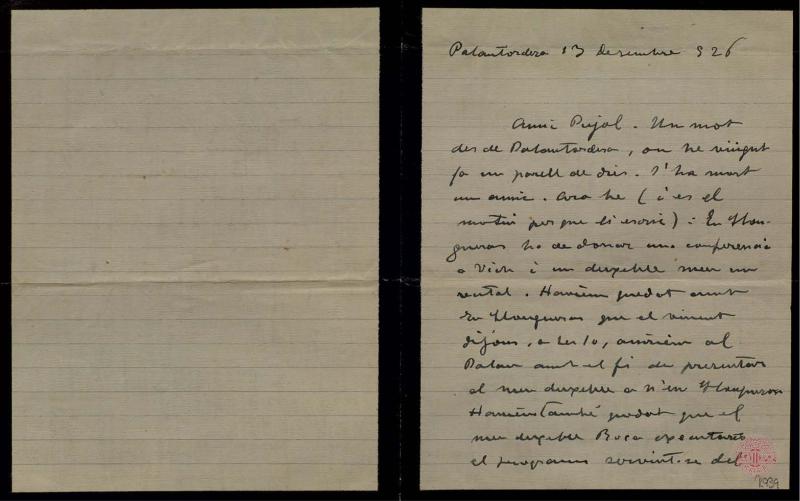 Palautordera 13 desembre 926
Amic Pujol. Un mot
des de Palautordera, on he vingut
fa un parell de dies. S'ha mort
un amic. Ara he (i es el
motiu per que li escric): En Llon-
gueras ha de donar una conferencia
a Vich i un deixeble meu un
recital. Haviem quedat amb
En Llongueras que el vinent
dijous, a les 10, aniriem al
Palau amb el fi de presentar
el meu deixeble a n'en Llongueras
Haviem també quedat que el
meu deixeble Roca executaria
el programa servint-se del
1939